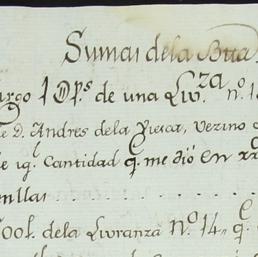 Sumas dela Bua
argo 1 Dp.s de una Liv.za n.o 1
e d. Andres dela Yesca, Vezino
e ig.l Cantidad q.e me dió en
nllar . . . . . . . . . . .
ool. dela Livranza N.o 14,, q.e